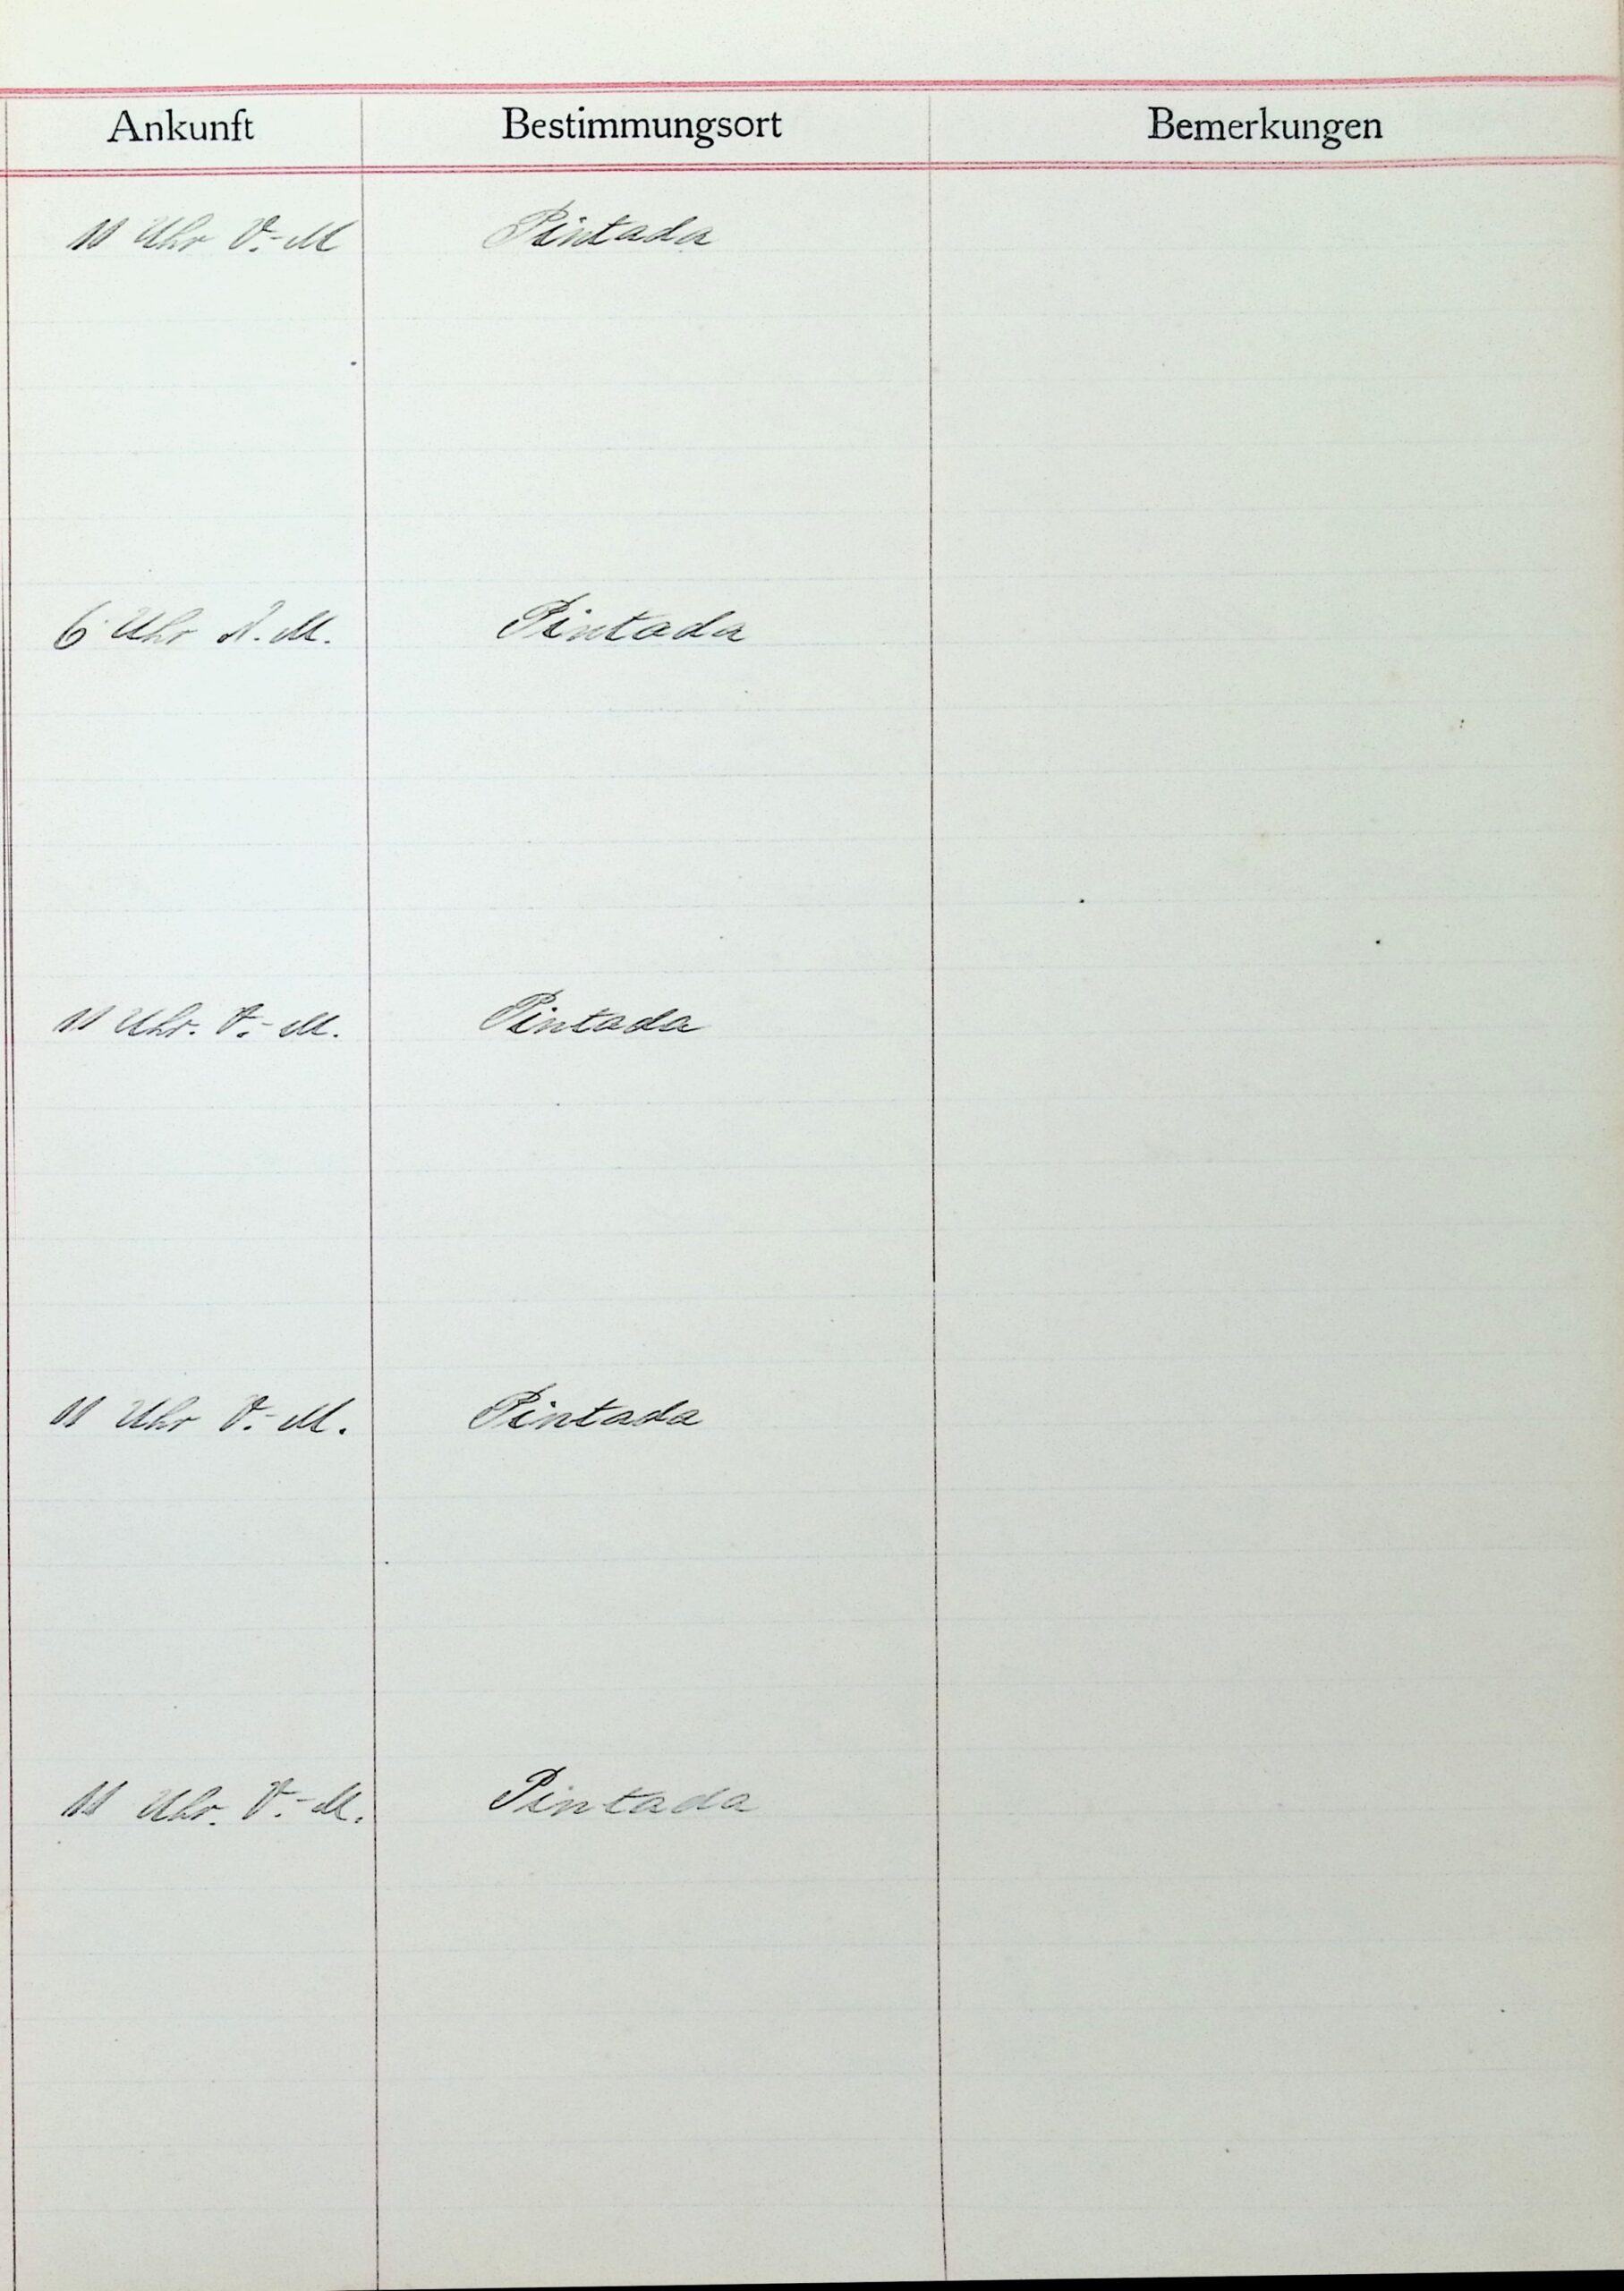 Ankunft Bestimmungsort Bemerkungen
11 Uhr V.-M Pintada
6 Uhr N.M. Pintada
11 Uhr. V.-M. Pintada
11 Uhr V.-M. Pintada
11 Uhr. V.-M. Pintada